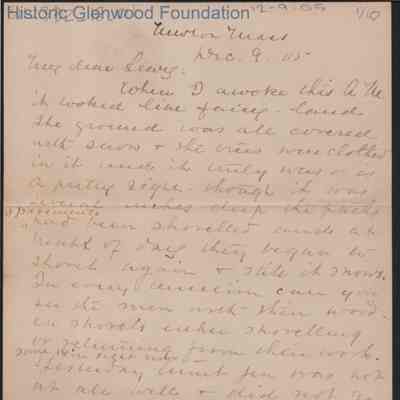 Historic Glenwood Foundation
12-9-05
Newton Mass
Dec. 9. 05
My dear
When I awoke this A.M.
it looked like fairy-land
The ground was all covered
with snow & the trees were clothed
in it and it truly was
a pretty sight though it was
several inches deep the paths
& pavements
had been shovelled and at
break of day they began to
shovel again & still it snows.
In every direction can you
see the men with their wood-
en shovels either shovelling
or returning from their work.
Yesterday Aunt was not
at all well & did not